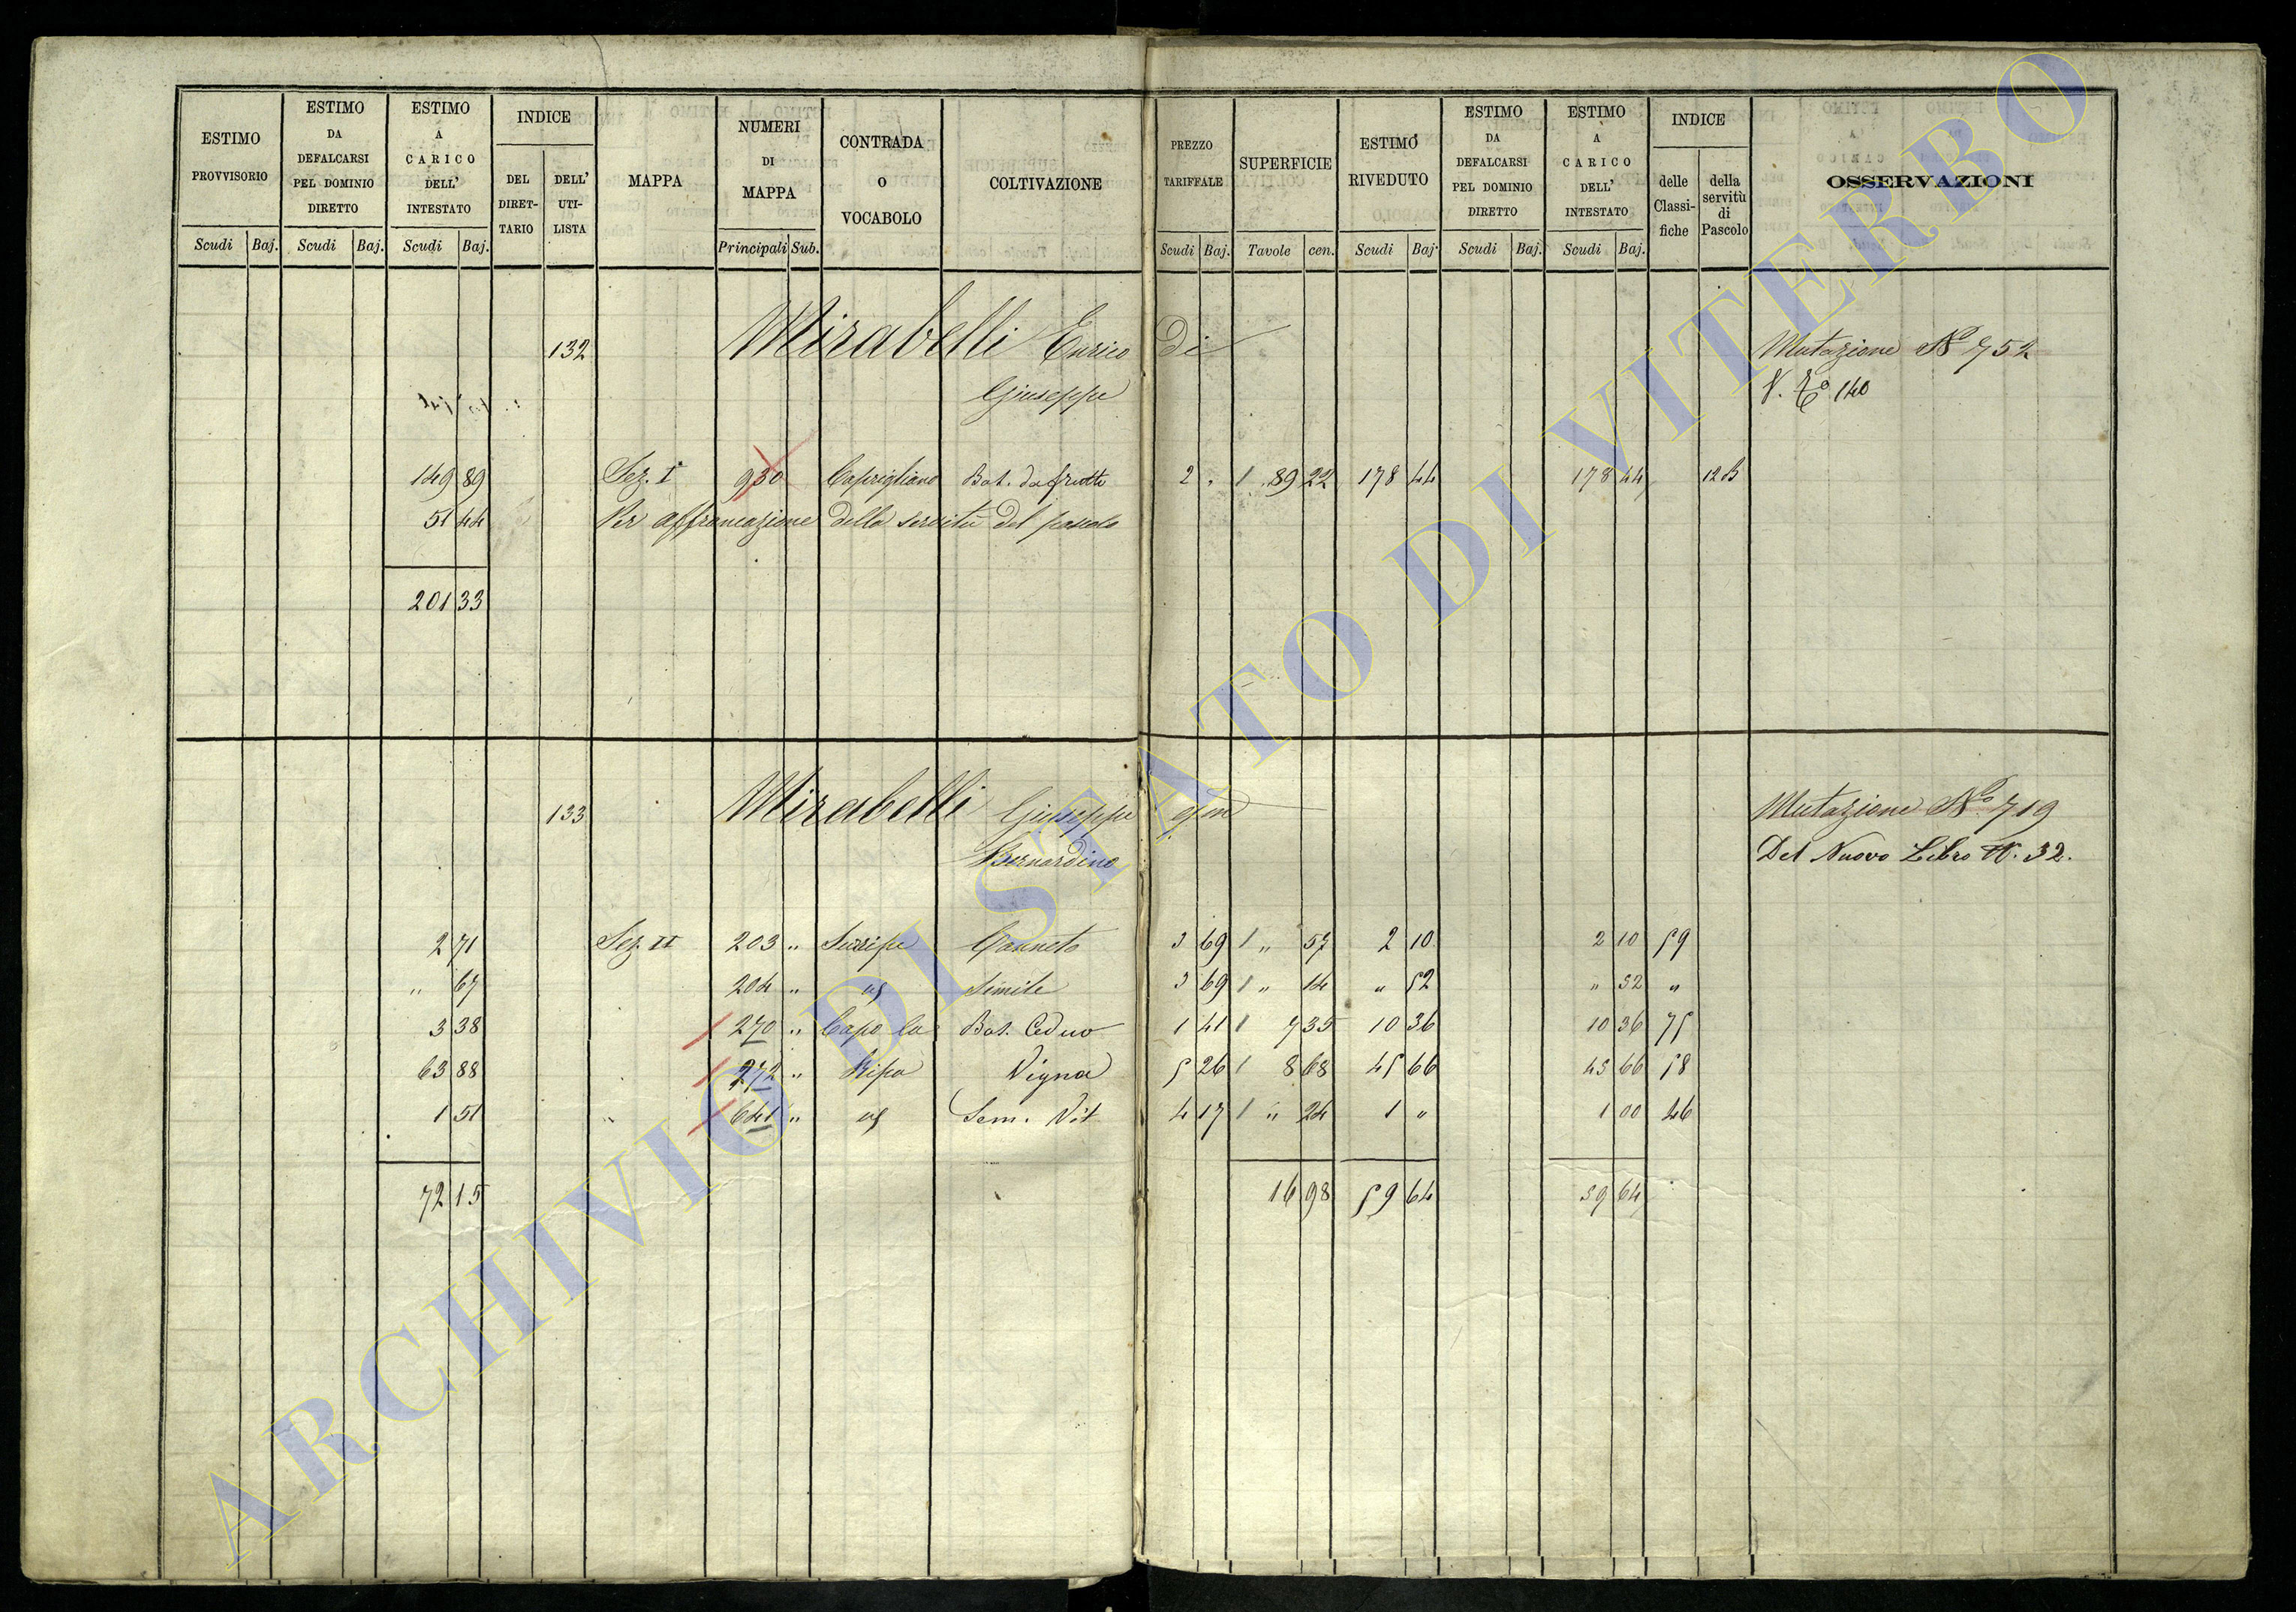 ESTIMO PROVVISORIO
Scudi Baj.
ESTIMO DA DEFALCARSI PEL DOMINIO DIRETTO
Scudi Baj.
ESTIMO A CARICO DELL' INTESTATO
Scudi Baj.
INDICE
DEL DIRET- TARIO
DELL' UTI- LISTA
MAPPA
NUMERI DI MAPPA
Principali Sub.
CONTRADA O VOCABOLO
COLTIVAZIONE
PREZZO TARIFFALE
Scudi Baj.
SUPERFICIE
Tavole cen.
ESTIMO RIVEDUTO
Scudi Baj.
ESTIMO DA DEFALCARSI PEL DOMINIO DIRETTO
Scudi Baj.
ESTIMO A CARICO DELL' INTESTATO
Scudi Baj.
INDICE
delle Classi- fiche
della servitù di Pascolo
OSSERVAZIONI
132 Mirabelli Enrico di Mutazione No 752
Giuseppe 140
149 89 Sez. I 930 Caprigliano Bos. da frutto 2 " 1 89 22 178 44 178 44 12 B
51 44 Per affrancazione della servitù del pascolo
201 33
133 Mirabelli Giuseppe qm Mutazione No 719
Bernardino Del Nuovo Libro N. 32.
2 71 Sez II 203 " Surripe Canneto 3 69 1 " 57 2 10 2 10 59
" 67 204 " Simile 3 69 1 " 14 " 52 " 52 "
3 38 270 " Capo la Bos. Ceduo 1 41 1 7 35 10 36 10 36 75
63 88 272 " Ripa Vigna 5 26 1 8 68 45 66 45 66 58
1 51 " 641 " Sem. Vit 4 17 1 " 24 1 " 1 00 46
72 15 16 98 59 64 59 64
ARCHIVIO DI STATO DI VITERBO